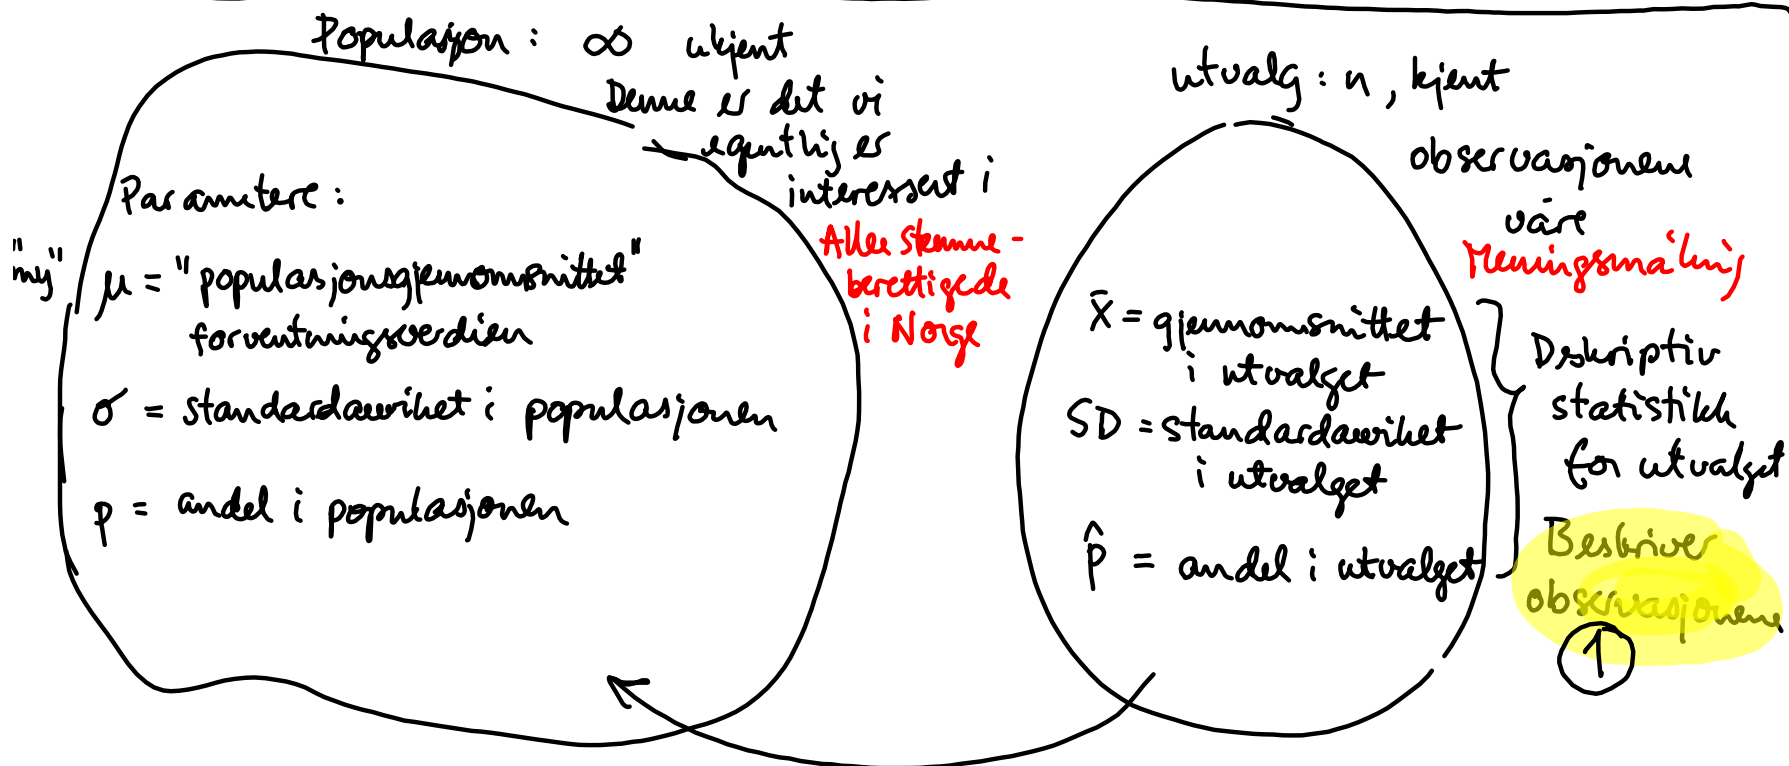 Populasjon : ∞ ukjent
Denne er det vi
egentlig er
interessert i
Alle stemme-
berettigede
i Norge
Parametere :
"my"
μ = "populasjonsgjennomsnittet"
forventningsverdien
σ = standardavviket i populasjonen
p = andel i populasjonen
utvalg : n , kjent
observasjonene
våre
Meningsmåling
X̄ = gjennomsnittet
i utvalget
SD = standardavviket
i utvalget
p̂ = andel i utvalget
Deskriptiv
statistikk
for utvalget
Beskriver
observasjonene
1